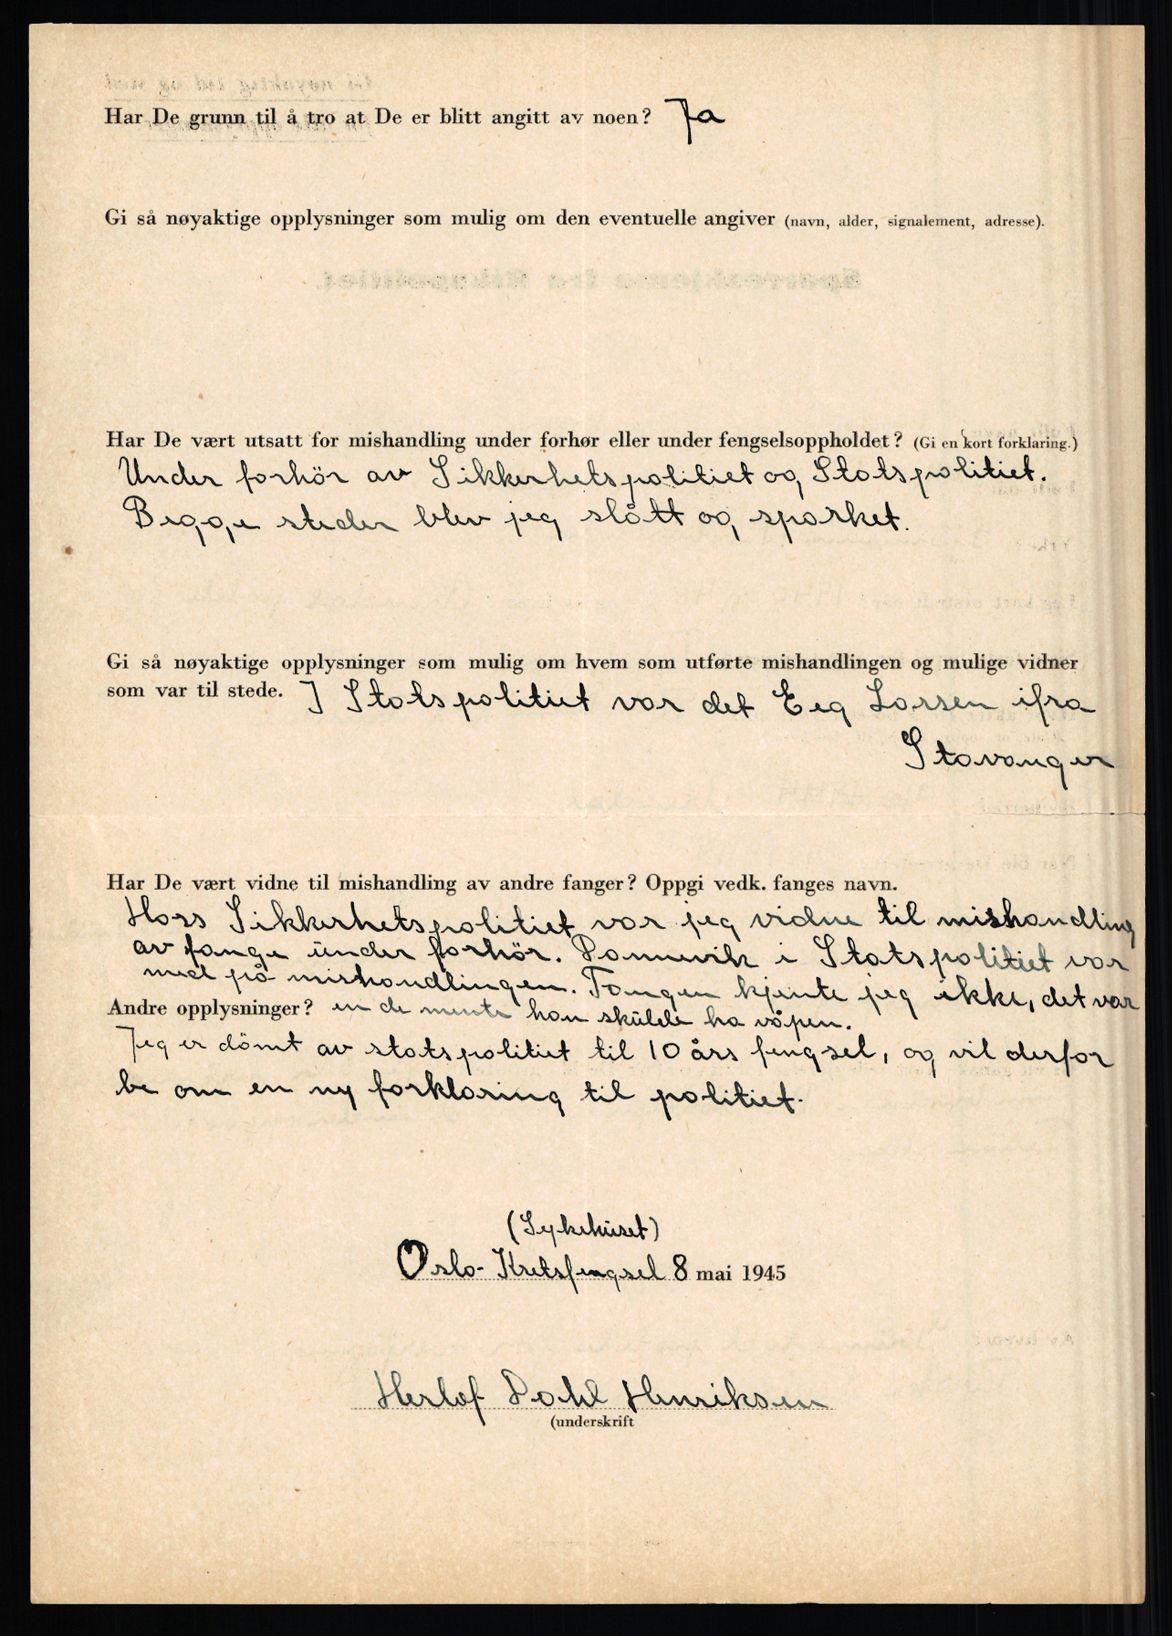 Har De grunn til å tro at De er blitt angitt av noen? Ja
Gi så nøyaktige opplysninger som mulig om den eventuelle angiver (navn, alder, signalement, adresse).
Har De vært utsatt for mishandling under forhør eller under fengselsoppholdet? (Gi en kort forklaring.)
Under forhör av Sikkerhetspolitiet og Statspolitiet.
Begge steder blev jeg slått og sparket.
Gi så nøyaktige opplysninger som mulig om hvem som utførte mishandlingen og mulige vidner
som var til stede. I Statspolitiet var det Eeg Larsen ifra
Stavanger
Har De vært vidne til mishandling av andre fanger? Oppgi vedk. fanges navn.
Hoss Sikkerhetspolitiet var jeg vidne til mishandling
av fange under forhör. i Statspolitiet var
med på mishandlingen. Fangen kjente jeg ikke, det var
Andre opplysninger? en de mente han skulde ha våpen.
Jeg er dömt av statspolitiet til 10 års fengsel, og vil derfor
be om en ny forklaring til politiet.
(Sykehuset)
Oslo- Kretsfengsel 8 mai 1945
Herlof Dahl Henriksen
(underskrift